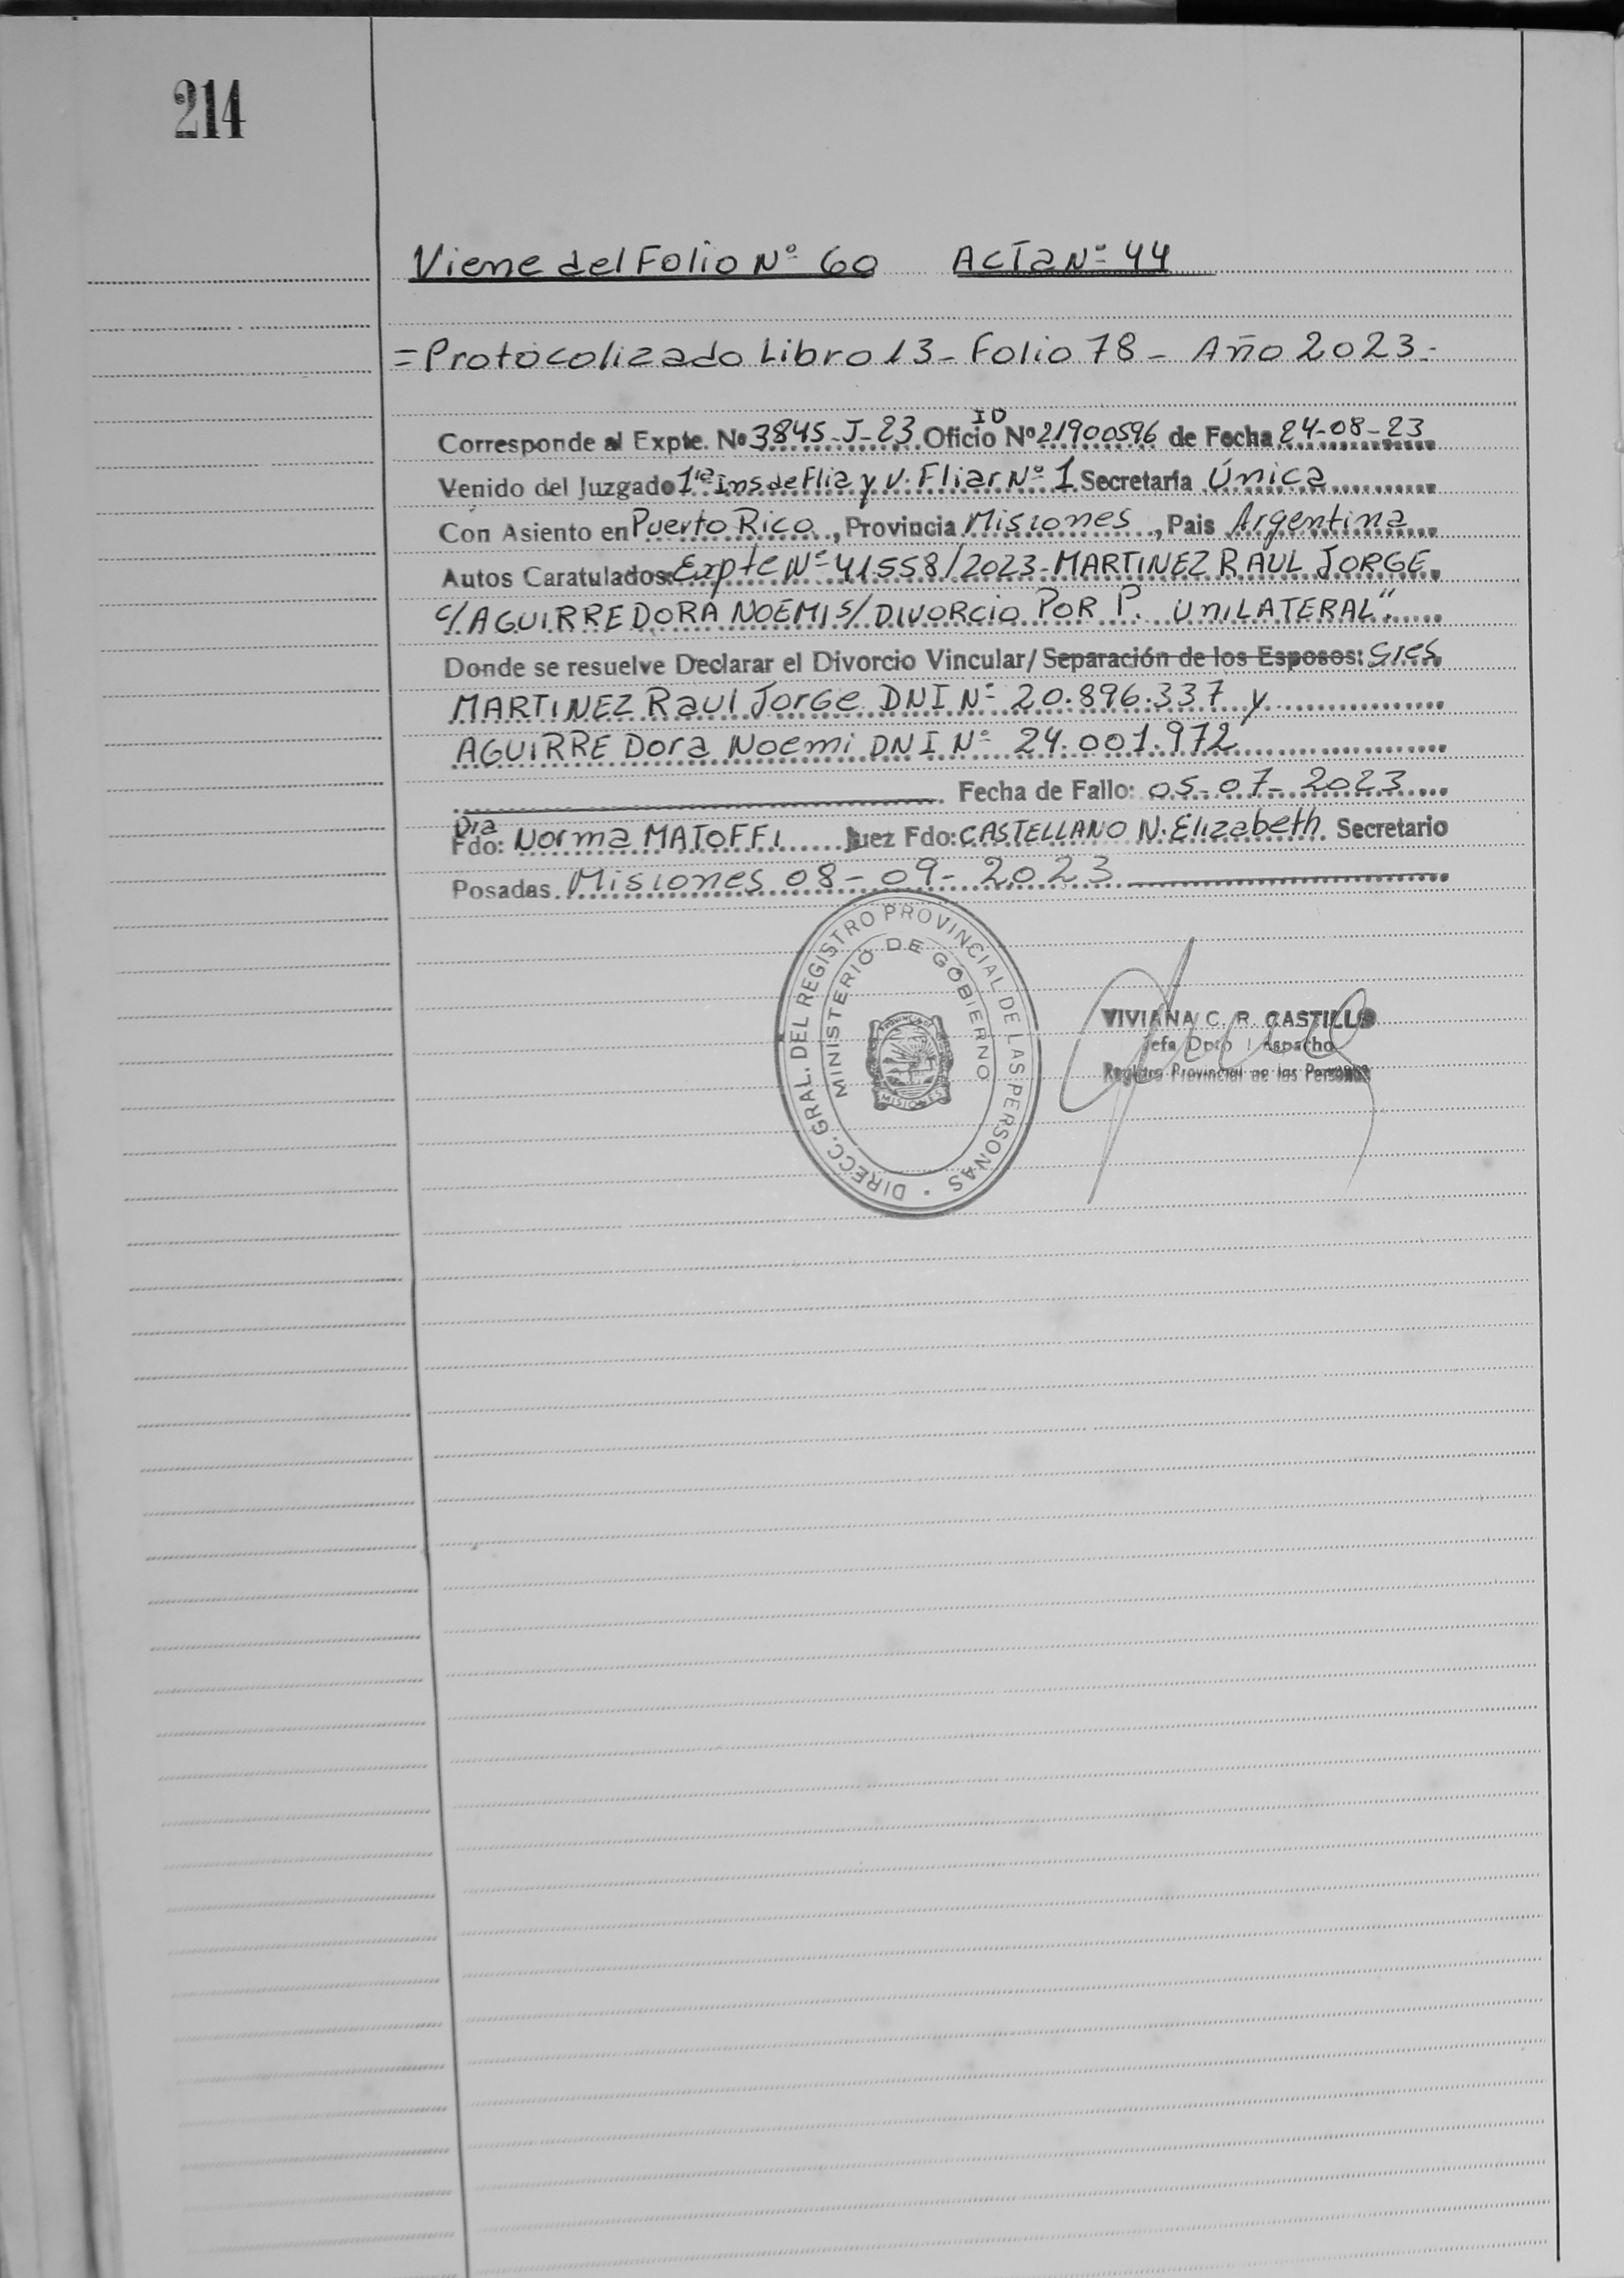 214
Viene del Folio Nº 60 ACTA Nº 44
=Protocolizado Libro 13- Folio 78 - Año 2023-
ID
Corresponde al Expte. Nº 3845-J-23 Oficio Nº 21900596 de Fecha 24-08-23
Venido del Juzgado 1ra Ins de Flia y V. Fliar Nº 1 Secretaría Única
Con Asiento en Puerto Rico, Provincia Misiones, Pais Argentina
Autos Caratulados: Expte Nº 41558/2023- MARTINEZ RAUL JORGE
C/ AGUIRRE DORA NOEMI S/ DIVORCIO POR P. UNILATERAL".
Donde se resuelve Declarar el Divorcio Vincular/ Separación de los Esposos: Sres
MARTINEZ Raul Jorge DNI Nº 20.896.337 y
AGUIRRE Dora Noemi DNI Nº 24.001.972
Fecha de Fallo: 05-07-2023
Dra
Fdo: Norma MATOFFI Juez Fdo: CASTELLANO N. Elizabeth Secretario
Posadas. Misiones 08-09-2023
DIRECC. GRAL. DEL REGISTRO PROVINCIAL DE LAS PERSONAS
MINISTERIO DE GOBIERNO
MISIONES
VIVIANA C. R. CASTILLO
Jefa Dpto
Registro Provincial de las Personas